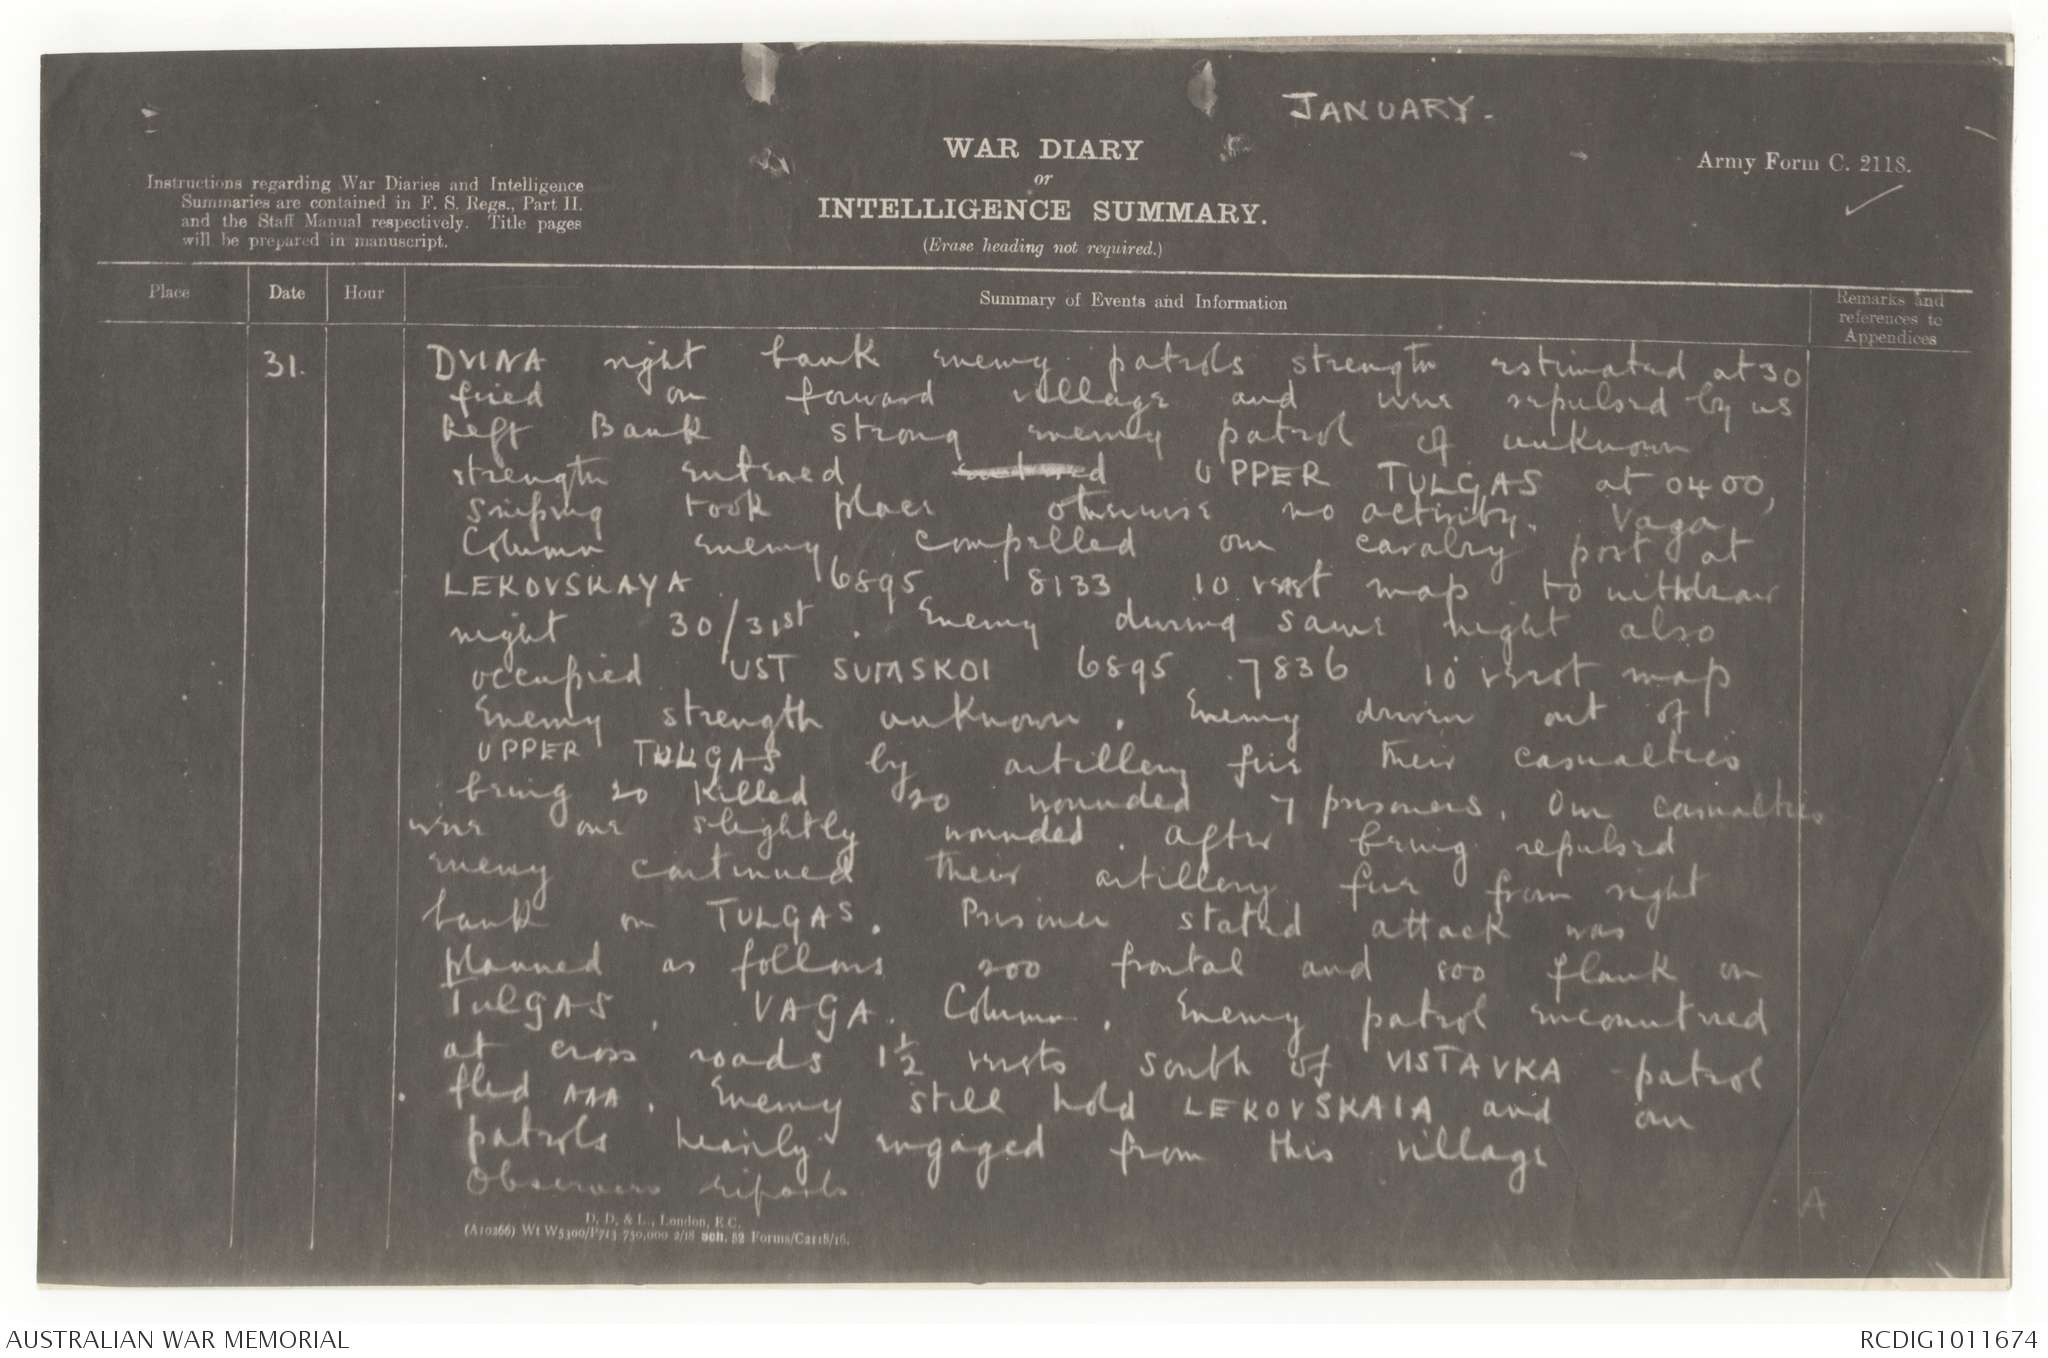 JANUARY.
WAR DIARY
or
INTELLIGENCE SUMMARY.
(Erase heading not required.)
Army Form C. 2118.
Instructions regarding War Diaries and Intelligence
Summaries are contained in F. S. Regs., Part II.
and the Staff Manual respectively. Title pages
will be prepared in manuscript.
Place
Date
Hour
Summary of Events and Information
Remarks and
references to
Appendices
31.
DVINA right bank enemy patrols strength estimated at 30
fired on forward village and were repulsed by us
Left Bank strong enemy patrol of unknown
strength entered UPPER TULGAS at 0400,
Sniping took place otherwise no activity. Vaga
Column enemy compelled our cavalry post at
LEKOVSKAYA 6895 8133 10 verst map to withdraw
night 30/31st. Enemy during same night also
occupied UST SUMSKOI 6895 7836 10 verst map
Enemy strength unknown. Enemy driven out of
UPPER TULGAS by artillery fire their casualties
being 20 killed 20 wounded 7 prisoners. Our casualties
were one slightly wounded. after being repulsed
enemy continued their artillery fire from right
bank on TULGAS. Prisoner stated attack was
planned as follows 200 frontal and 800 flank on
TULGAS. VAGA. Column. Enemy patrol encountered
at cross roads 1½ versts south of VISTAVKA patrol
fled AAA. Enemy still hold LEKOVSKAIA and our
patrols heavily engaged from this village
Observers reports
A
D. D. & L., London, E.C.
(A10266) Wt W5300/P713 750,000 2/18 Sch. 52 Forms/C2118/16.
AUSTRALIAN WAR MEMORIAL
RCDIG1011674